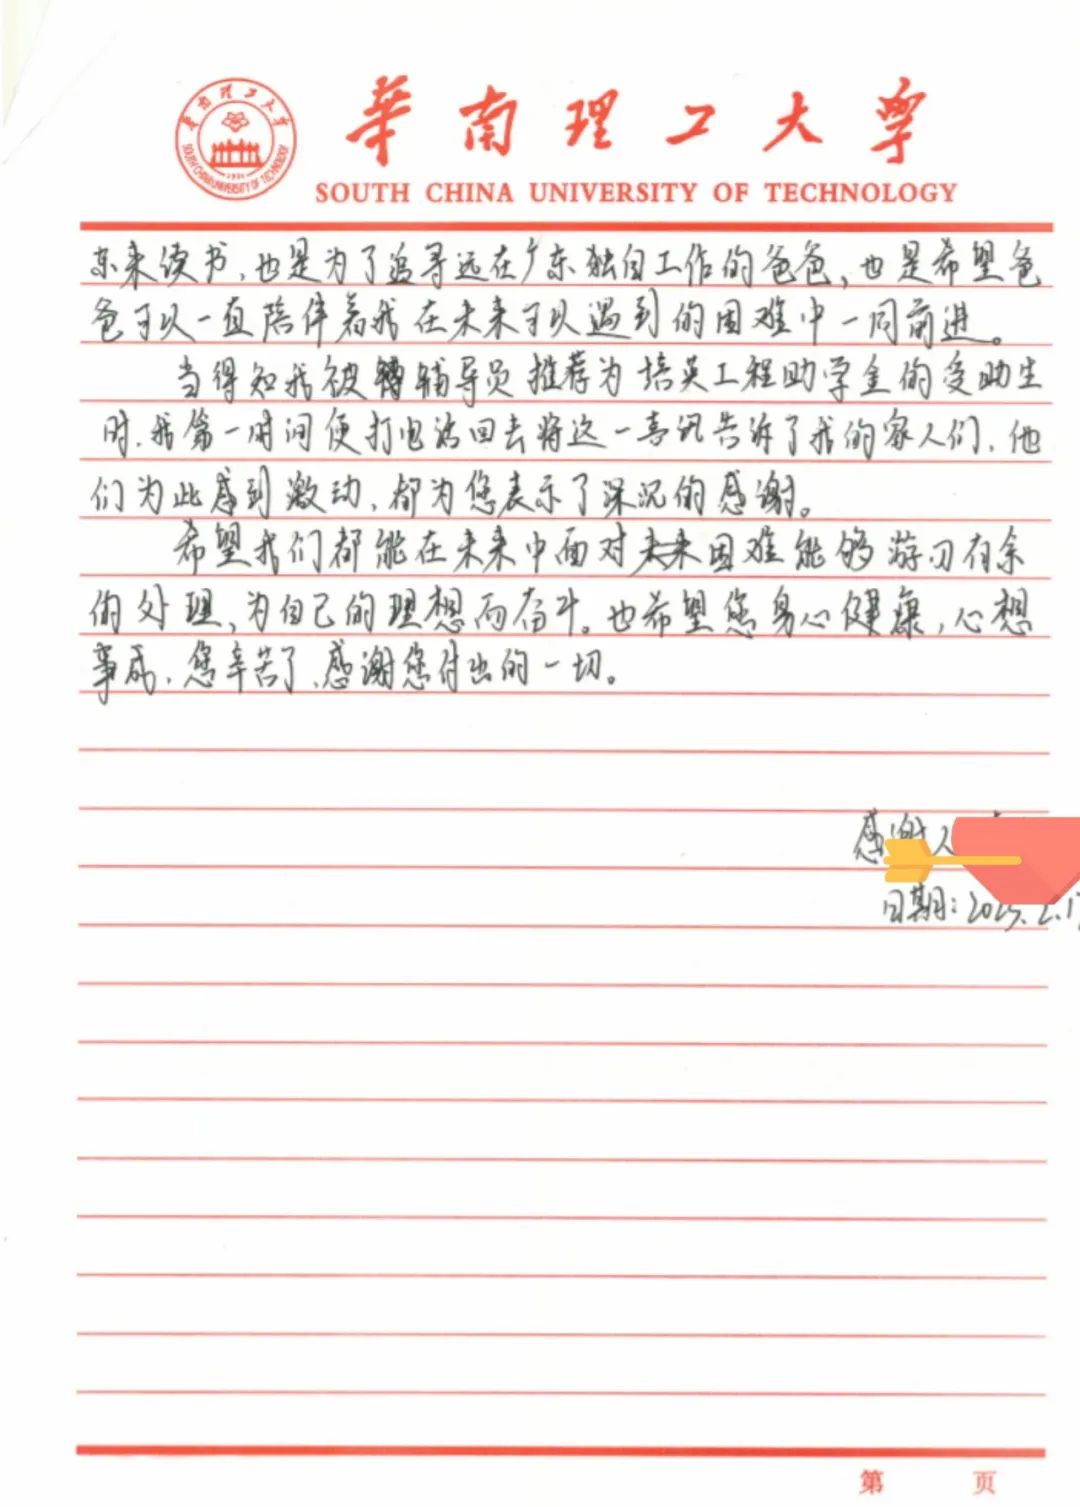 華南理工大学
SOUTH CHINA UNIVERSITY OF TECHNOLOGY
东来读书,也是为了追寻远在广东独自工作的爸爸,也是希望爸
爸可以一直陪伴着我在未来可以遇到的困难中一同前进。
当得知我被辅导员推荐为培英工程助学金的受助生
时,我第一时间便打电话回去将这一喜讯告诉了我的家人们,他
们为此感到激动,都为您表示了深沉的感谢。
希望我们都能在未来中面对困难能够游刃有余
的处理,为自己的理想而奋斗。也希望您身心健康,心想
事成,您辛苦了,感谢您付出的一切。
感谢人
日期:2025.2.1
第 页